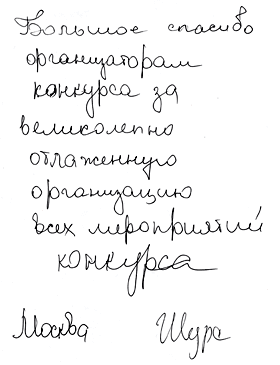 Большое спасибо
организаторам
конкурса за
великолепно
отлаженную
организацию
всех мероприятий
конкурса
Москва Шура